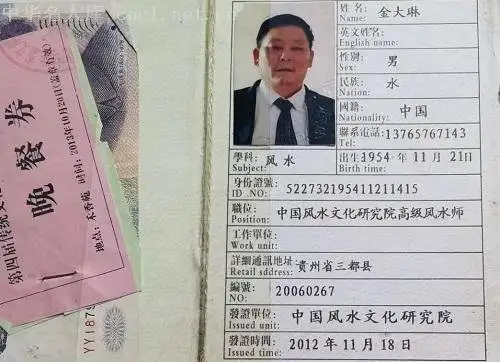 第四届传统文
晚餐券
时间：2013年10月20日(盖章有效)
地点：木香苑
YY187
姓名: 金大琳
Name:
英文姓名:
English name:
性别: 男
Sex:
民族: 水
Nation:
國籍: 中国
Nationality:
聯系電話: 13765767143
Tel:
學科: 风水
Subject:
出生1954 年 11 月 21日
Birth time:
身份證號: 522732195411211415
ID .NO:
職位: 中国风水文化研究院高级风水师
Position:
工作單位:
Work unit:
詳細通訊地址: 貴州省三都县
Retail sddress:
編號: 20060267
NO:
發證單位: 中国风水文化研究院
Issued unit:
發證時間: 2012 年 11 月 18 日
Issued time: